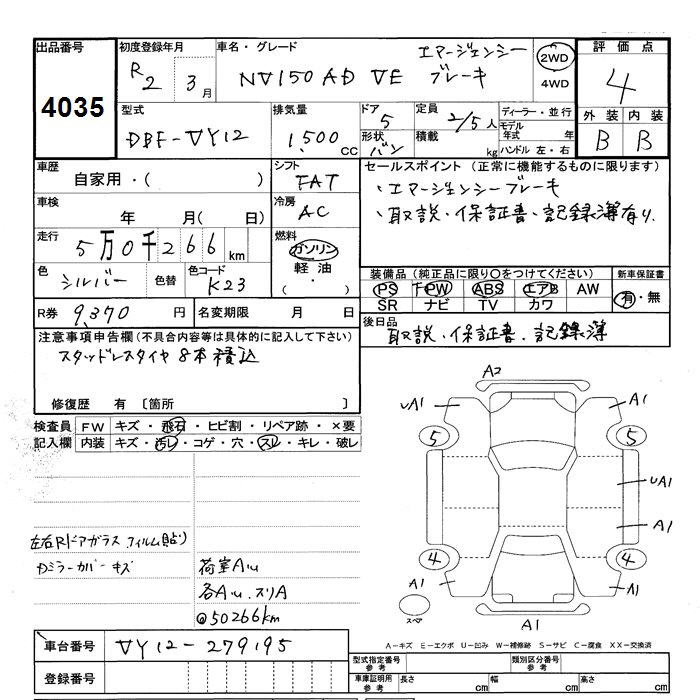 出品番号
4035
初度登録年月
R2 3月
車名・グレード
NV150 AD VE エマージェンシー
ブレーキ
2WD
4WD
評価点
4
外装 内装
B B
型式
DBF-VY12
排気量
1,500cc
ドア
5
形状
バン
定員
2/5人
積載 kg
ディーラー・並行
モデル年式 年
ハンドル 左・右
車歴
自家用・( )
シフト
FAT
車検
年 月( 日)
冷房
AC
走行
5万0千266km
燃料
ガソリン
軽油
( ・ )
色
シルバー
色替
色コード
K23
R券 9,370円
名変期限 月 日
セールスポイント (正常に機能するものに限ります)
・エマージェンシーブレーキ
・取説・保証書・記録簿有り
装備品(純正品に限り○をつけてください)
PS PW ABS エアB AW
SR ナビ TV カワ
新車保証書
有・無
後日品
取説・保証書・記録簿
注意事項申告欄(不具合内容等は具体的に記入して下さい)
スタッドレスタイヤ8本積込
修復歴 有〔箇所 〕
検査員記入欄
FW キズ・飛石・ヒビ割・リペア跡・×要
内装 キズ・汚レ・コゲ・穴・スレ・キレ・破レ
左右Rドアガラス フィルム貼り
Dミラーカバー キズ
荷室Au
各Au.スリA
@50266km
A2
uA1 A1
5 5
uA1
A1
4 4
A1 A1
スペア
A1
A-キズ E-エクボ U-凹み W-補修跡 S-サビ C-腐食 XX-交換済
車台番号 VY12-279195
登録番号
型式指定番号
参考
類別区分番号
参考
車庫証明用
参考
長さ cm 幅 cm 高さ cm